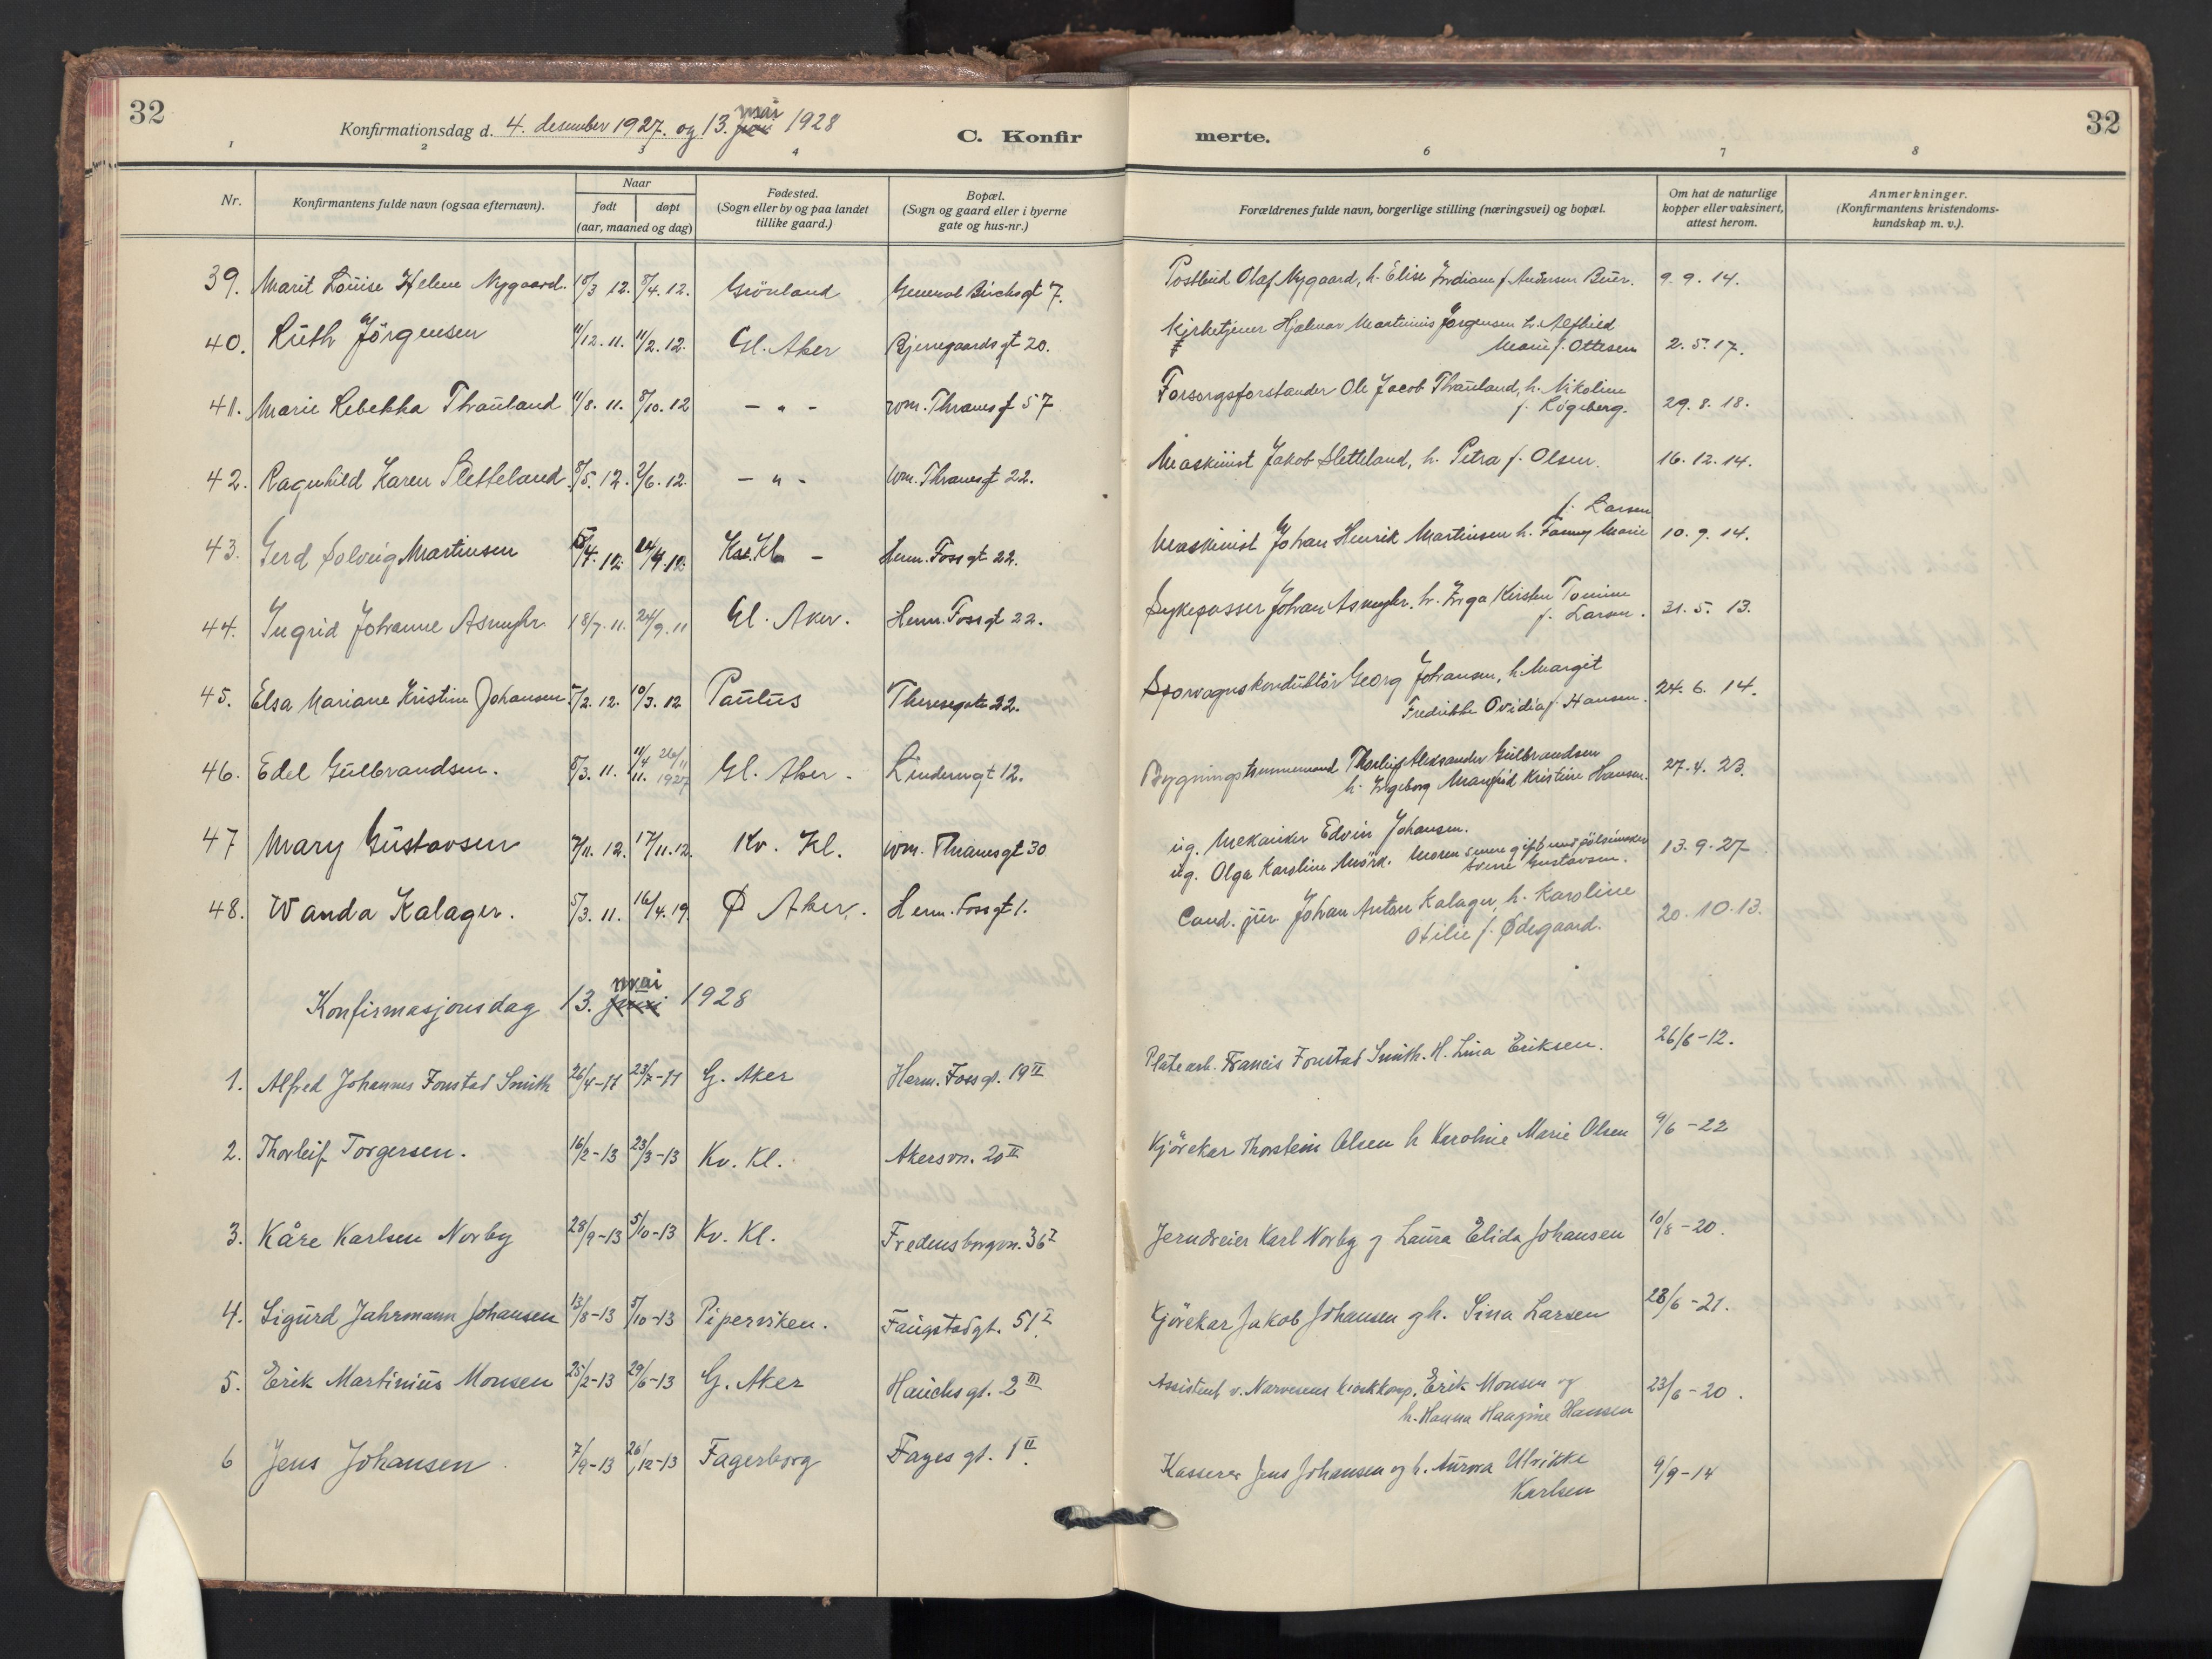 32
Konfirmationsdag d. 4. desember 1927. og 13. mai 1928
C. Konfir
merte.
32
1 2 3 4 6 7 8
Nr.
Konfirmantens fulde navn (ogsaa efternavn).
Naar
født døpt
(aar, maaned og dag)
Fødested.
(Sogn eller by og paa landet
tillike gaard.)
Bopæl.
(Sogn og gaard eller i byerne
gate og hus-nr.)
Forældrenes fulde navn, borgerlige stilling (næringsvei) og bopæl.
Om hat de naturlige
kopper eller vaksinert,
attest herom.
Anmerkninger.
(Konfirmantens kristendoms-
kundskap m. v.).
39. Marit Louise Helene Nygaard. 18/3 12. 8/4. 12. Grönland General Birchs gt 7. Postbud Olaf Nygaard, h. Elise f. Andersen Buer. 9. 9. 14.
40. Ruth Jörgensen 11/12. 11. 11/2. 12. Gl. Aker Bjerregaards gt 20. Kirketjener Hjalmar Martinius Jörgensen h. Alfhild
Marie f. Ottesen 2. 5. 17.
41. Marie Rebekka Thrauland 11/8. 11. 8/10. 12 - " - wm. Thranes gt 57 Forsorgsforstander Ole Jacob Thrauland, h. Nikoline
f. Rögeberg. 29. 8. 18.
42. Ragnhild Karen Sletteland 8/5. 12. 2/6. 12. - " - Wm. Thranes gt 22. Maskinist Jakob Sletteland, h. Petra f. Olsen. 16. 12. 14.
f. Larsen
43. Gerd Solveig Martinsen /4. 12. /9. 12. Kl - Herm. Foss gt 22. Maskinist Johan Henrik Martinsen h. Fanny Marie 10. 9. 14.
44. Ingrid Johanne Asmyhr 18/7. 11. 24/9. 11 Gl. Aker. Herm. Foss gt 22. Sykepasser Johan Asmyhr. h. Inga Kirsten Tomine
f. Larsen. 31. 5. 13.
45. Elsa Mariane Kristine Johansen /2. 12. 10/3. 12 Paulus Theresegate 22. Sporvognskonduktör Georg Johansen, h. Margit
Fredrikke Ovidia f. Hansen. 24. 6. 14.
46. Edel Gulbrandsen. 8/3. 11. 11/4 11. 26/11 1927 Gl. Aker. Lindernsgt 12. Bygningstømmermand Thorleif Aleksander Gulbrandsen
h. Ingeborg Kristine Hansen. 27. 4. 23.
47 Mary Gustavsen 7/11. 12. 17/11. 12. Kv. Kl. Wm. Thranes gt 30 ug. Mekaniker Edvin Johansen.
ug. Olga Karoline Mörk. Moren senere gift med pölsemaker
Gustavsen. 13. 9. 27
48. Wanda Kalager. 5/3. 11. 16/4. 19. Ø Aker. Herm. Foss gt 1. Cand. jur Johan Anton Kalager, h. Karoline
Otilie f. Ødegaard. 20. 10. 13.
Konfirmasjonsdag 13. mai 1928
1. Alfred Johannes Fonstad Smith 26/4-11 23/7-11 G. Aker Herm. Foss gt. 19 II Platearb. Francis Fonstad Smith. H. Lina Eriksen. 26/6-12.
2. Thorleif Torgersen. 16/2-13 23/3-13 Kv. Kl. Akersvn. 20 II Kjörekar Thorstein Olsen h Karoline Marie Olsen 9/6-22
3. Kåre Karlsen Norby 28/9-13 5/10-13 Kv. Kl. Fredensborgvn. 36 I Jerndreier Karl Norby og Laura Elida Johansen 10/8-20.
4. Sigurd Jahrmann Johansen 13/8-13 5/10-13 Piperviken. Faugstadgt. 51 I Kjörekar Jakob Johansen og h. Sina Larsen 28/6-21.
5. Erik Martinius Monsen 25/2-13 29/6-13 G. Aker Hauchs gt. 2 III Assistent v. Narvesens kioskkomp. Erik Monsen og
h. Hanna Haagine Hansen 23/6-20.
6 Jens Johansen. 7/9-13 26/12-13 Fagerborg Fayes gt. 1 II Kasserer Jens Johansen og h. Aurora Ulrikke
Karlsen 9/9-14